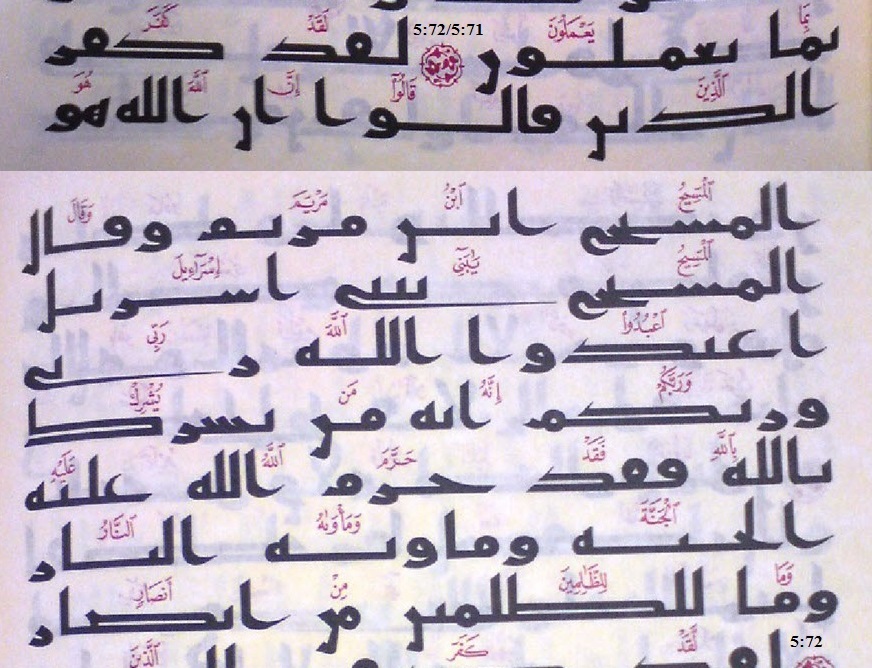 5:72/5:71
بِمَا يَعْمَلُونَ لَقَدْ كَفَرَ
بما يعملون لقد كفر
ٱلَّذِينَ قَالُوٓا۟ إِنَّ ٱللَّهَ هُوَ
الذين قالوا ان الله هو
ٱلْمَسِيحُ ٱبْنُ مَرْيَمَ وَقَالَ
المسيح ابن مريم وقال
ٱلْمَسِيحُ يَٰبَنِىٓ إِسْرَٰٓءِيلَ
المسيح يبني اسريل
ٱعْبُدُوا۟ ٱللَّهَ رَبِّى
اعبدوا الله ربي
وَرَبَّكُمْ إِنَّهُۥ مَن يُشْرِكْ
وربكم انه من يشرك
بِٱللَّهِ فَقَدْ حَرَّمَ ٱللَّهُ عَلَيْهِ
بالله فقد حرم الله عليه
ٱلْجَنَّةَ وَمَأْوَىٰهُ ٱلنَّارُ
الجنه وماويه النار
وَمَا لِلظَّٰلِمِينَ مِنْ أَنصَارٍ
وما للظلمين من انصار
5:72
لَّقَدْ كَفَرَ ٱلَّذِينَ